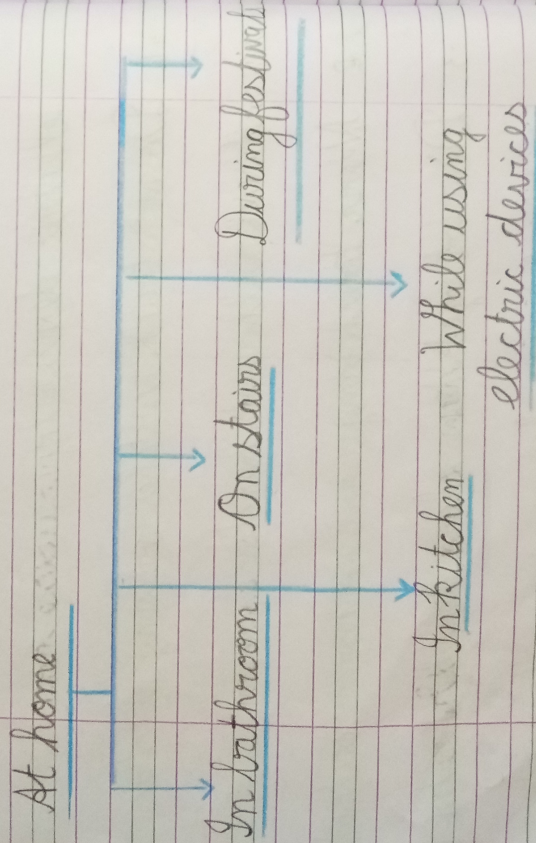 At home
In bathroom
On stairs
During festivals
In kitchen
While using
electric devices